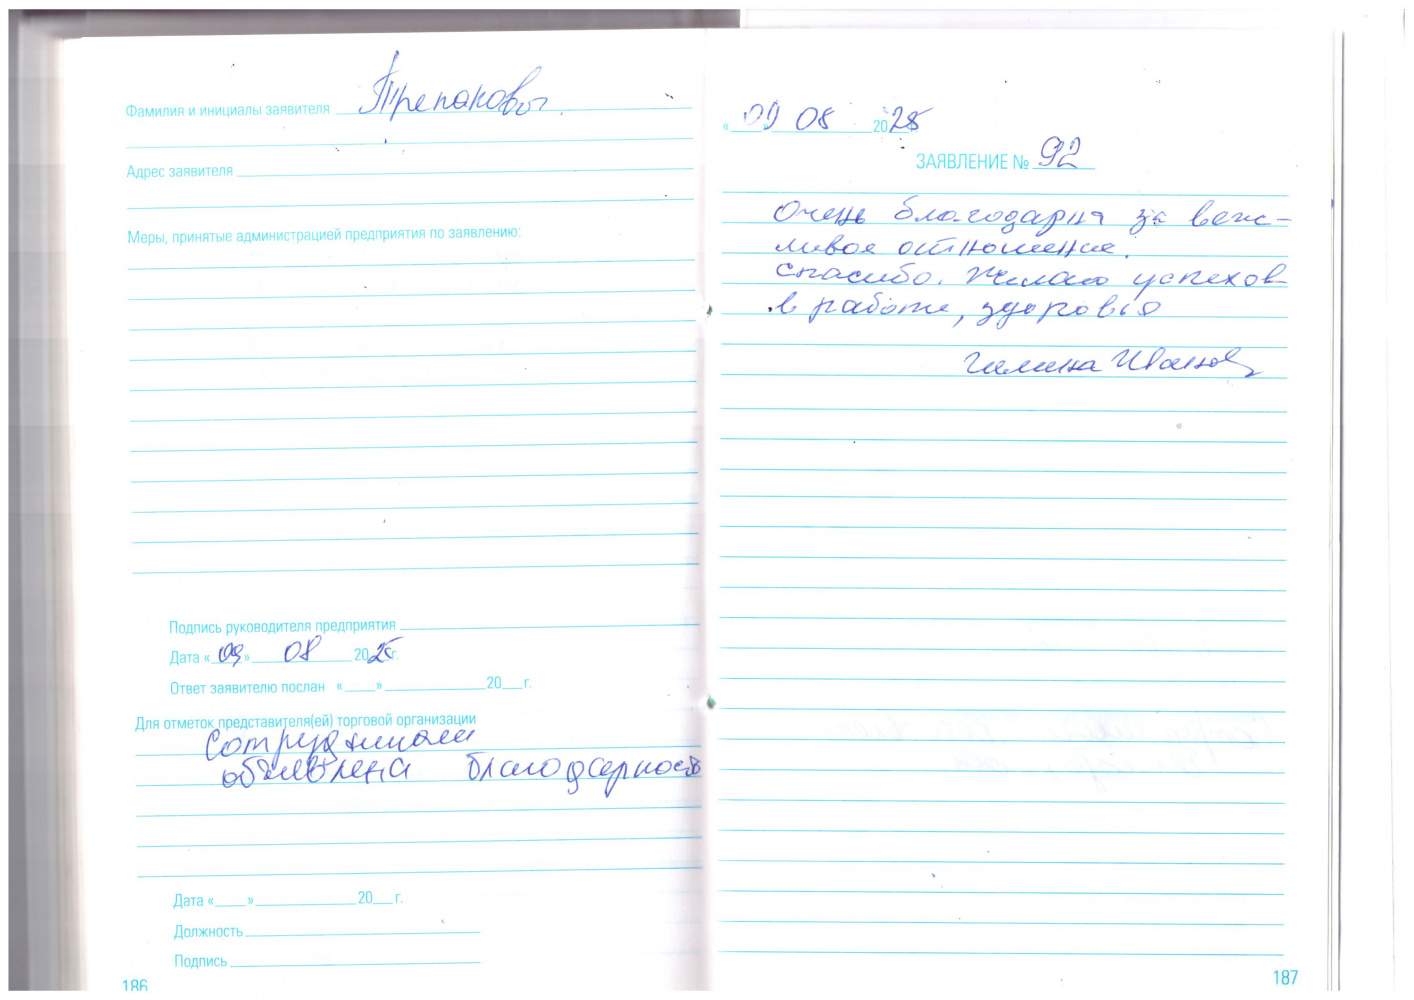 Фамилия и инициалы заявителя Трепаковы.
Адрес заявителя
Меры, принятые администрацией предприятия по заявлению:
Подпись руководителя предприятия
Дата «09» 08 2025г.
Ответ заявителю послан «    »     20    г.
Для отметок представителя(ей) торговой организации
Сотрудникам
объявлена благодарность
Дата «    »     20    г.
Должность
Подпись
186
«09 08 2025
ЗАЯВЛЕНИЕ № 92
Очень благодарна за веж-
ливое отношение.
Спасибо. Желаю успехов
в работе, здоровья
Галина Иванов
187